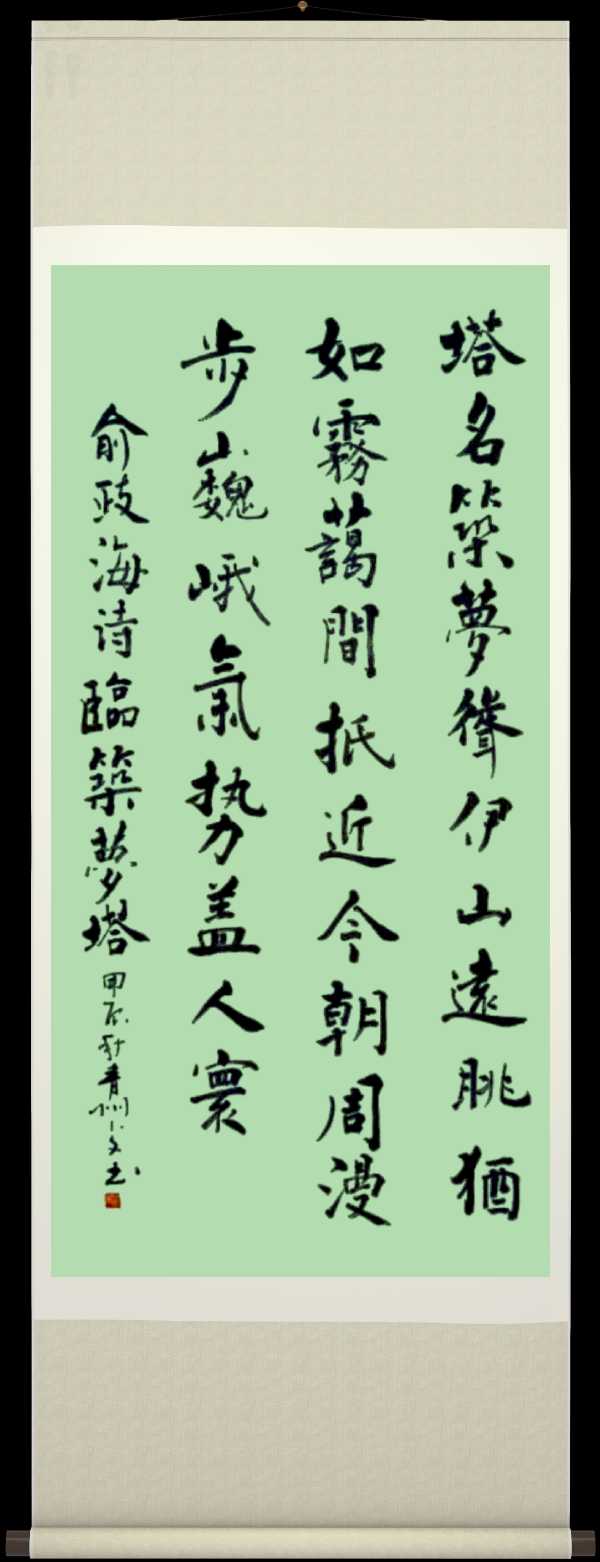 塔名築夢聳伊山遠眺猶
如霧藹間抵近今朝周漫
步巍峨氣势盖人寰
俞政海诗臨築夢塔甲辰秋青州卜文书